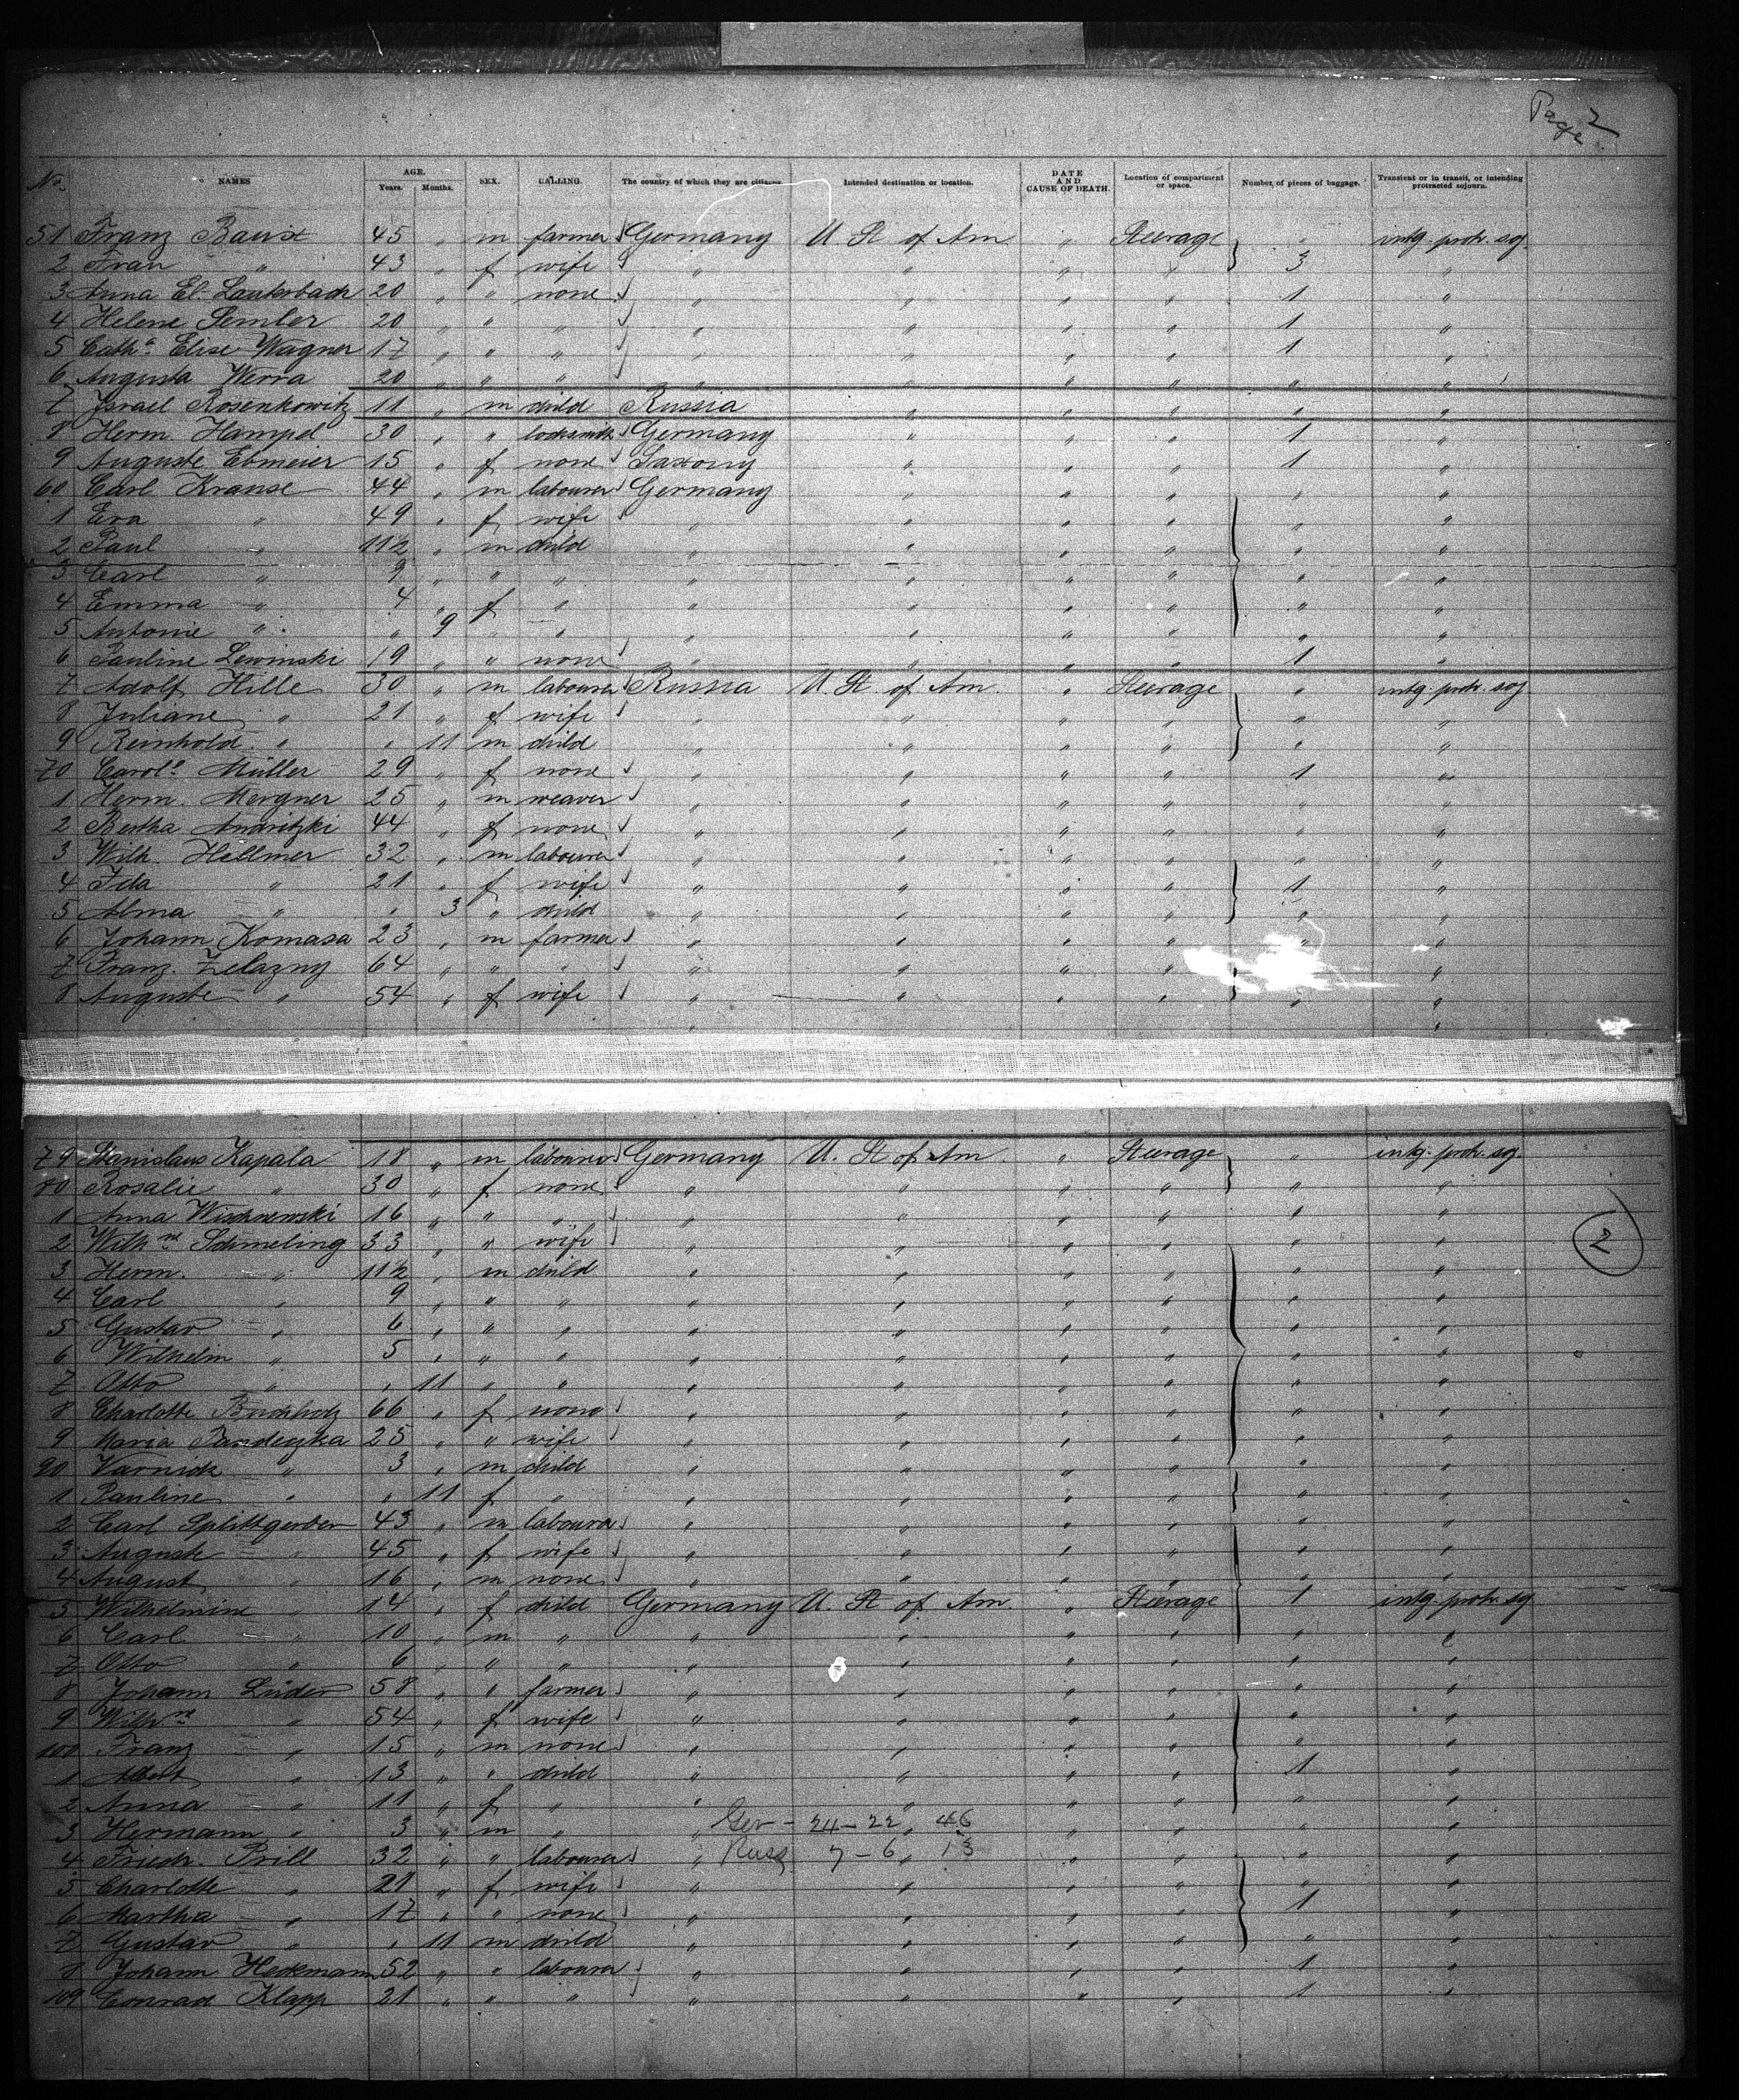 Page 2
No. NAMES AGE. Years. Months. SEX. CALLING. The country of which they are citizens. Intended destination or location. DATE AND CAUSE OF DEATH. Location of compartment or space. Number of pieces of baggage. Transient or in transit, or intending protracted sojourn.
51 Franz Baust 45 " m farmer Germany U. St. of Am " Steerage " intg. protr. soj.
2 Frau " 43 " f wife " " " " 3 "
3 Anna El. Lauterbach 20 " " none " " " " 1 "
4 Helene Semler 20 " " " " " " " 1 "
5 Cath.a Elise Wagner 17 " " " " " " " 1 "
6 Augusta Werra 20 " " " " " " " " "
7 Israel Rosenkowitz 11 " m child Russia " " " " "
8 Herm. Hampel 30 " " locksmith Germany " " " 1 "
9 Auguste Ebmeier 15 " f none Saxony " " " 1 "
60 Carl Krause 44 " m labourer Germany " " " " "
1 Eva " 49 " f wife " " " " " "
2 Paul " 11½ " m child " " " " " "
3 Carl " 9 " " " " " " " " "
4 Emma " 4 " f " " " " " " "
5 Antonie " " 9 " " " " " " " "
6 Pauline Lewinski 19 " " none " " " " 1 "
7 Adolf Hille 30 " m labourer Russia U. St. of Am. " Steerage " intg. protr. soj
8 Juliane " 21 " f wife " " " " " "
9 Reinhold " " 11 m child " " " " " "
70 Carole Müller 29 " f none " " " " 1 "
1 Herm. Mergner 25 " m weaver " " " " " "
2 Bertha Andritzki 44 " f none " " " " " "
3 Wilh. Hellmer 32 " m labourer " " " " " "
4 Ida " 21 " f wife " " " " 1 "
5 Alma " " 3 " child " " " " " "
6 Johann Komasa 23 " m farmer " " " " " "
7 Franz Zelazny 64 " " " " " " " "
8 Auguste " 54 " f wife " " " " " "
79 Stanislaus Kapala 18 " m labourer Germany U. St of Am " Steerage " intg. protr. soj.
80 Rosalie " 30 " f none " " " " " "
1 Anna Wischnewski 16 " " " " " " " " "
2 Wilhne Schmeling 33 " " wife " " " " " "
2
3 Herm. " 11½ " m child " " " " " "
4 Carl " 9 " " " " " " " " "
5 Gustav " 6 " " " " " " " " "
6 Wilhelm " 5 " " " " " " " " "
7 Otto " " 11 " " " " " " " "
8 Charlotte Buchholz 66 " f none " " " " " "
9 Maria 25 " " wife " " " " " "
90 " 3 " m child " " " " " "
1 Pauline " " 11 f " " " " " " "
2 Carl Splittgerber 43 " m labourer " " " " " "
3 Auguste " 45 " f wife " " " " " "
4 August " 16 " m none " " " " " "
5 Wilhelmine " 14 " f child Germany U. St of Am. " Steerage 1 intg. protr. soj
6 Carl " 10 " m " " " " " " "
7 Otto " 6 " " " " " " " " "
8 Johann Lüder 58 " " farmer " " " " " "
9 Wilhne " 54 " f wife " " " " " "
100 Franz " 15 " m none " " " " " "
1 Albert " 13 " " child " " " " 1 "
2 Anna " 11 " f " " " " " " "
3 Hermann " 3 " m " " Ger - 24 - 22 46 " " " "
4 Friedr. Prill 32 " " labourer " Russ 7 - 6 13 " " " "
5 Charlotte " 21 " f wife " " " " " "
6 Martha " 17 " " none " " " " 1 "
7 Gustav " " 11 m child " " " " " "
8 Johann Heckmann 52 " " labourer " " " " 1 "
109 Conrad Klapp 21 " " " " " " " 1 "